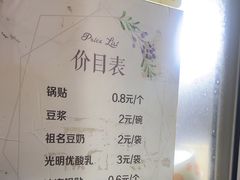 Price List
价目表
锅贴 0.8元/个
豆浆 2元/碗
祖名豆奶 2元/袋
光明优酸乳 3元/袋
锅贴 0.6元/个